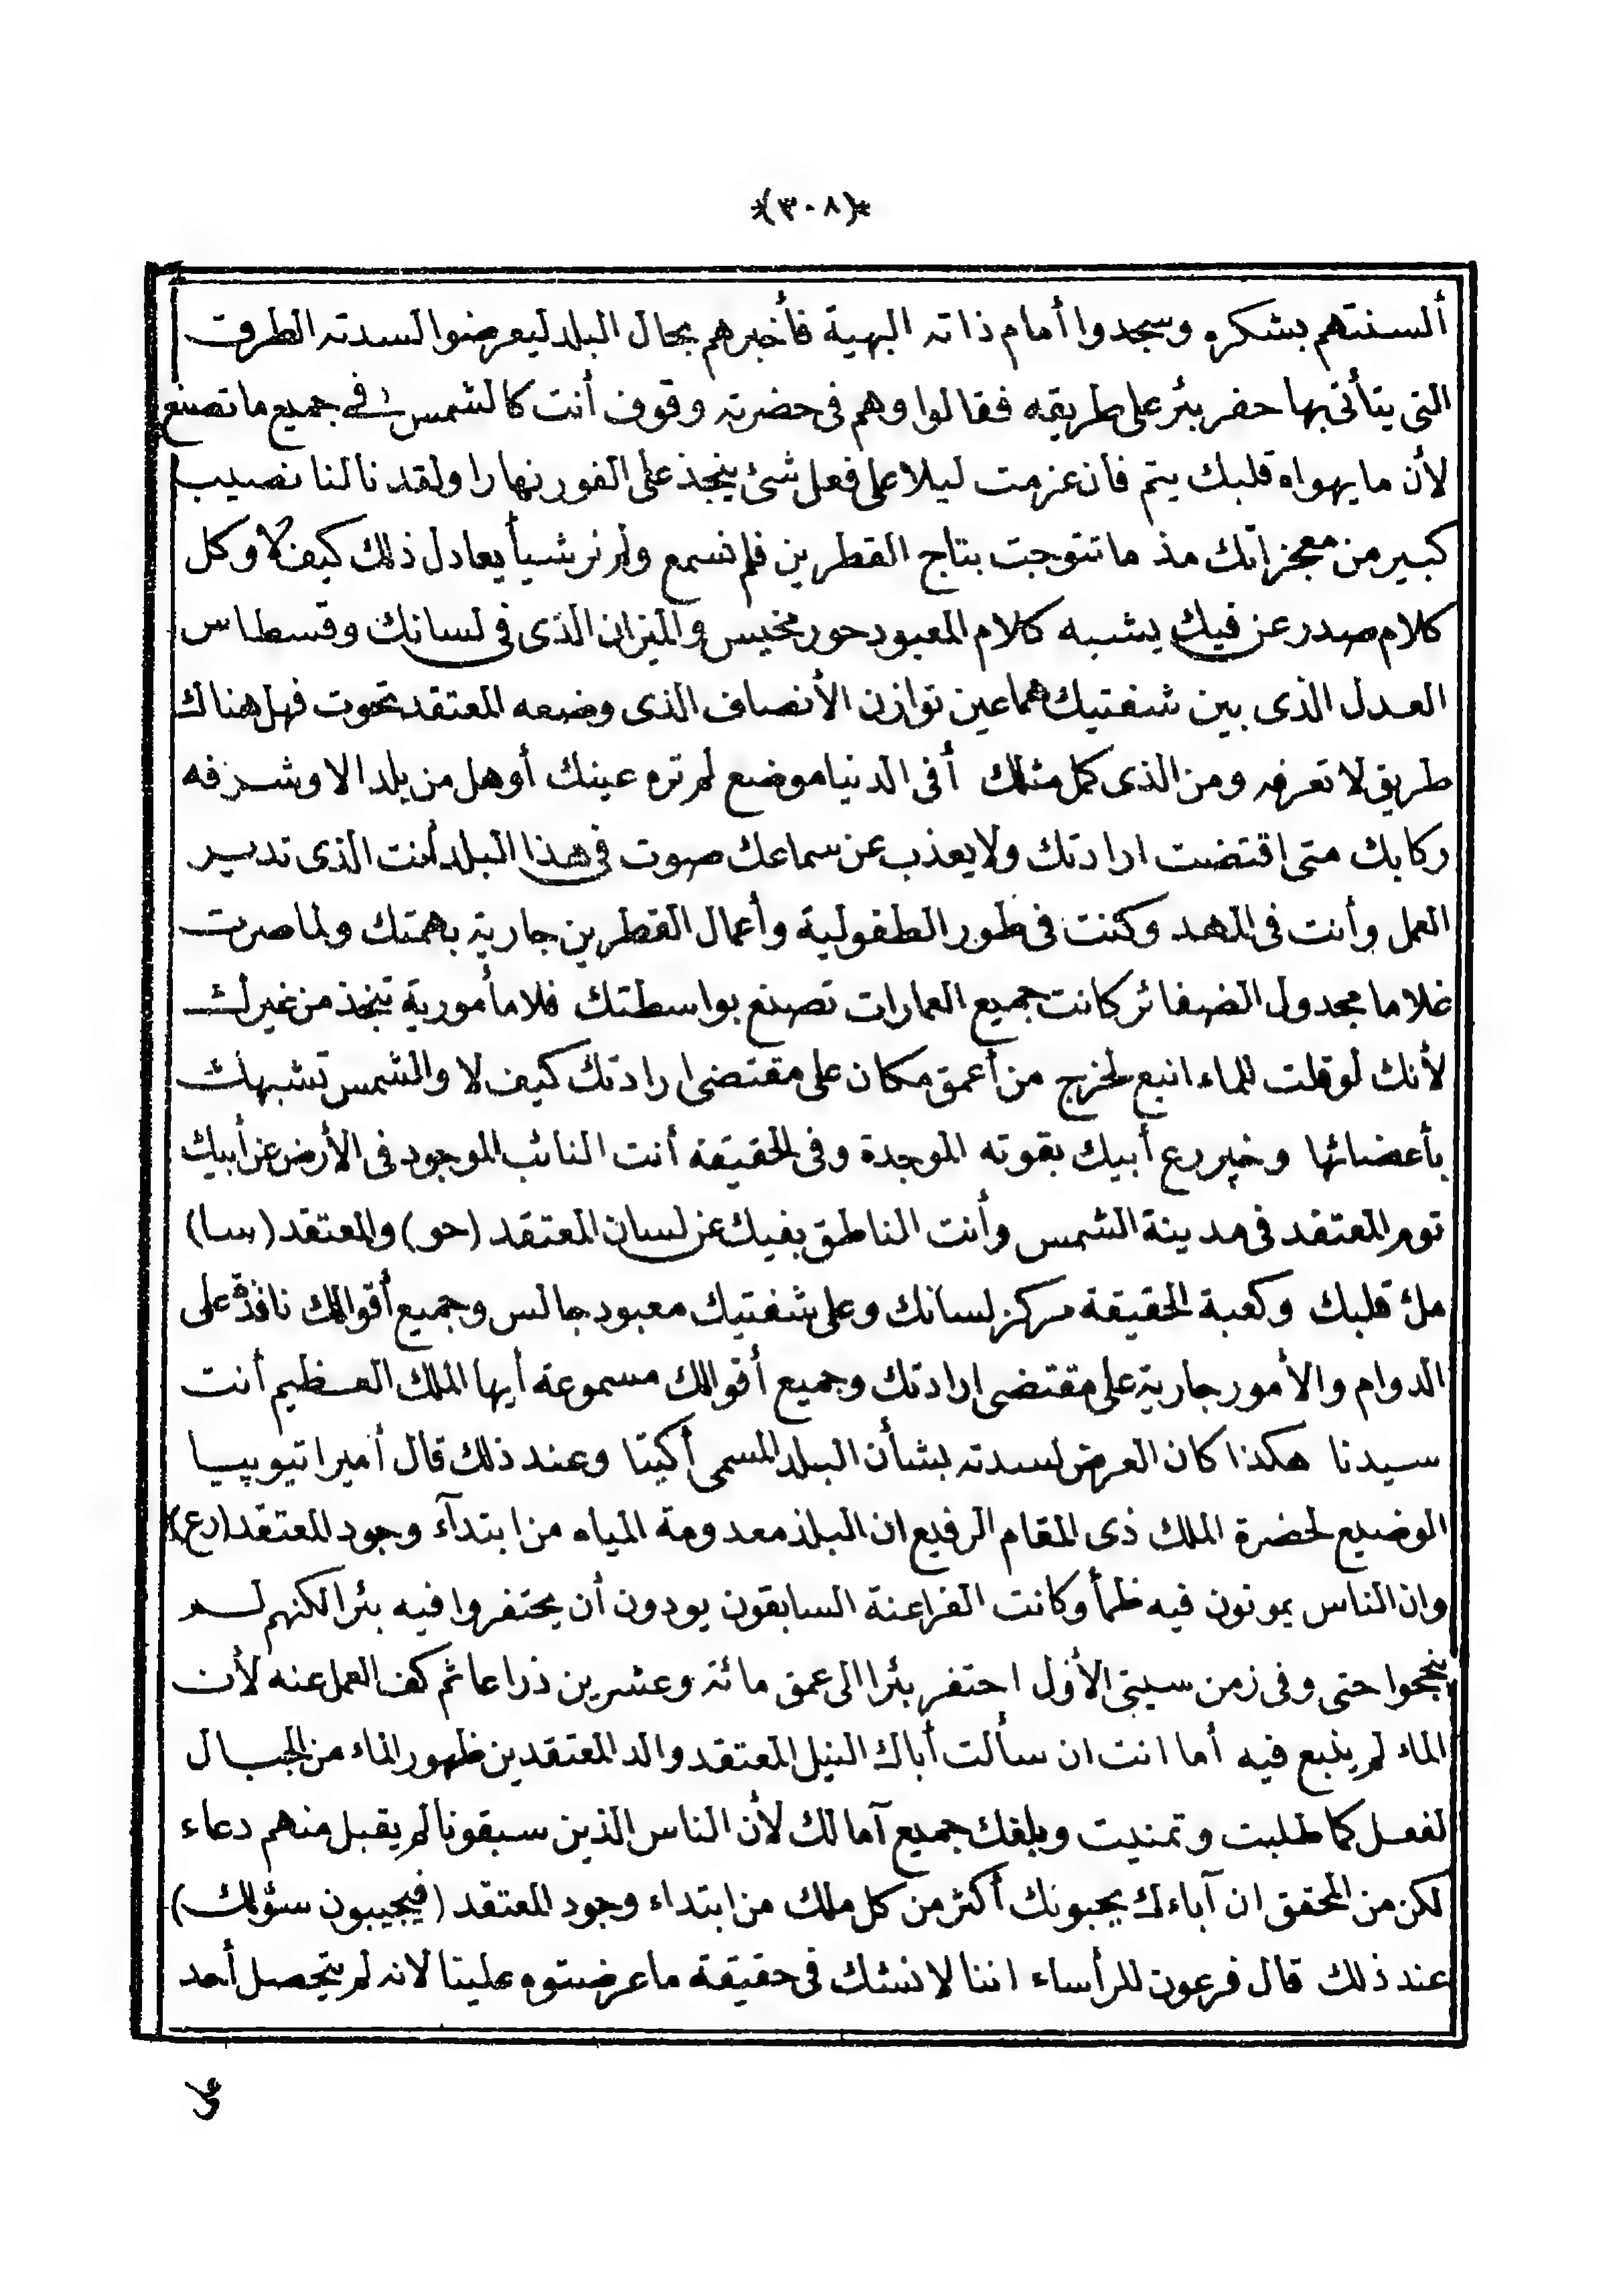 *(٣٠٨)*
ألسنتهم بشكره وسجدوا أمام ذاته البهية فأخبرهم بحال البلد ليعرضوا لسدته الطرق
التى يتأتى بها حفر بئر على طريقه فقالوا وهم فى حضرته وقوف أنت كالشمس فى جميع ما تصنع
لأن ما يهواه قلبك يتم فان عزمت ليلا على فعل شئ ينجذ على الفور نهارا ولقد نالنا نصيب
كبير من معجزاتك مذ ما تتوجت بتاج القطرين فلم نسمع ولم نر شيأ يعادل ذلك كيف لا وكل
كلام صدر عن فيك يشبه كلام المعبود حور مخيس والميزان الذى فى لسانك وقسطاس
العدل الذى بين شفتيك هما عين توازن الأنصاف الذى وضعه المعتقد تحوت فهل هناك
طريق لا تعرفه ومن الذى كمل مثلك أفى الدنيا موضع لم تره عينك أو هل من بلد الا وشرفه
ركابك متى اقتضت ارادتك ولا يعذب عن سماعك صوت فى هذا البلد أنت الذى تدير
العمل وأنت فى المهد وكنت فى طور الطفولية وأعمال القطرين جارية بهمتك ولما صرت
غلاما مجدول الضفائر كانت جميع العمارات تصنع بواسطتك فلا مأمورية تنجذ من غيرك
لأنك لو قلت للماء انبع لخرج من أعمق مكان على مقتضى ارادتك كيف لا والشمس تشبهك
بأعضائها وخپر رع أبيك بقوته الموجدة وفى الحقيقة أنت النائب الموجود فى الأرض عن أبيك
توم المعتقد فى مدينة الشمس وأنت الناطق بفيك عن لسان المعتقد (حو) والمعتقد (سا)
ملء قلبك وكعبة الحقيقة مركز لسانك وعلى شفتيك معبود جالس وجميع أقوالك نافذة على
الدوام والأمور جارية على مقتضى إرادتك وجميع أقوالك مسموعة أيها الملك العظيم أنت
سيدنا هكذا كان العرض لسدته بشأن البلد المسمى أكيتا وعند ذلك قال أمير اتيوپيا
الوضيع لحضرة الملك ذى المقام الرفيع ان البلد معدومة المياه من ابتدآء وجود المعتقد (رع)
وان الناس يموتون فيه ظمأ وكانت الفراعنة السابقون يودون أن يحتفروا فيه بئرا لكنهم لم
ينجحوا حتى وفى زمن سيتى الأول احتفر بئرا الى عمق مائة وعشرين ذراعا ثم كف العمل عنه لأن
الماء لم ينبع فيه أما انت ان سألت أباك النيل المعتقد والد المعتقدين ظهور الماء من الجبال
لفعل كما طلبت وتمنيت وبلغك جميع آمالك لأن الناس الذين سبقونا لم يقبل منهم دعاء
لكن من المحقق ان آباءك يحبونك أكثر من كل ملك من ابتداء وجود المعتقد (فيجيبون سؤلك)
عند ذلك قال فرعون للرأساء اننا لا نشك فى حقيقة ما عرضتوه علينا لانه لم يتحصل أحد